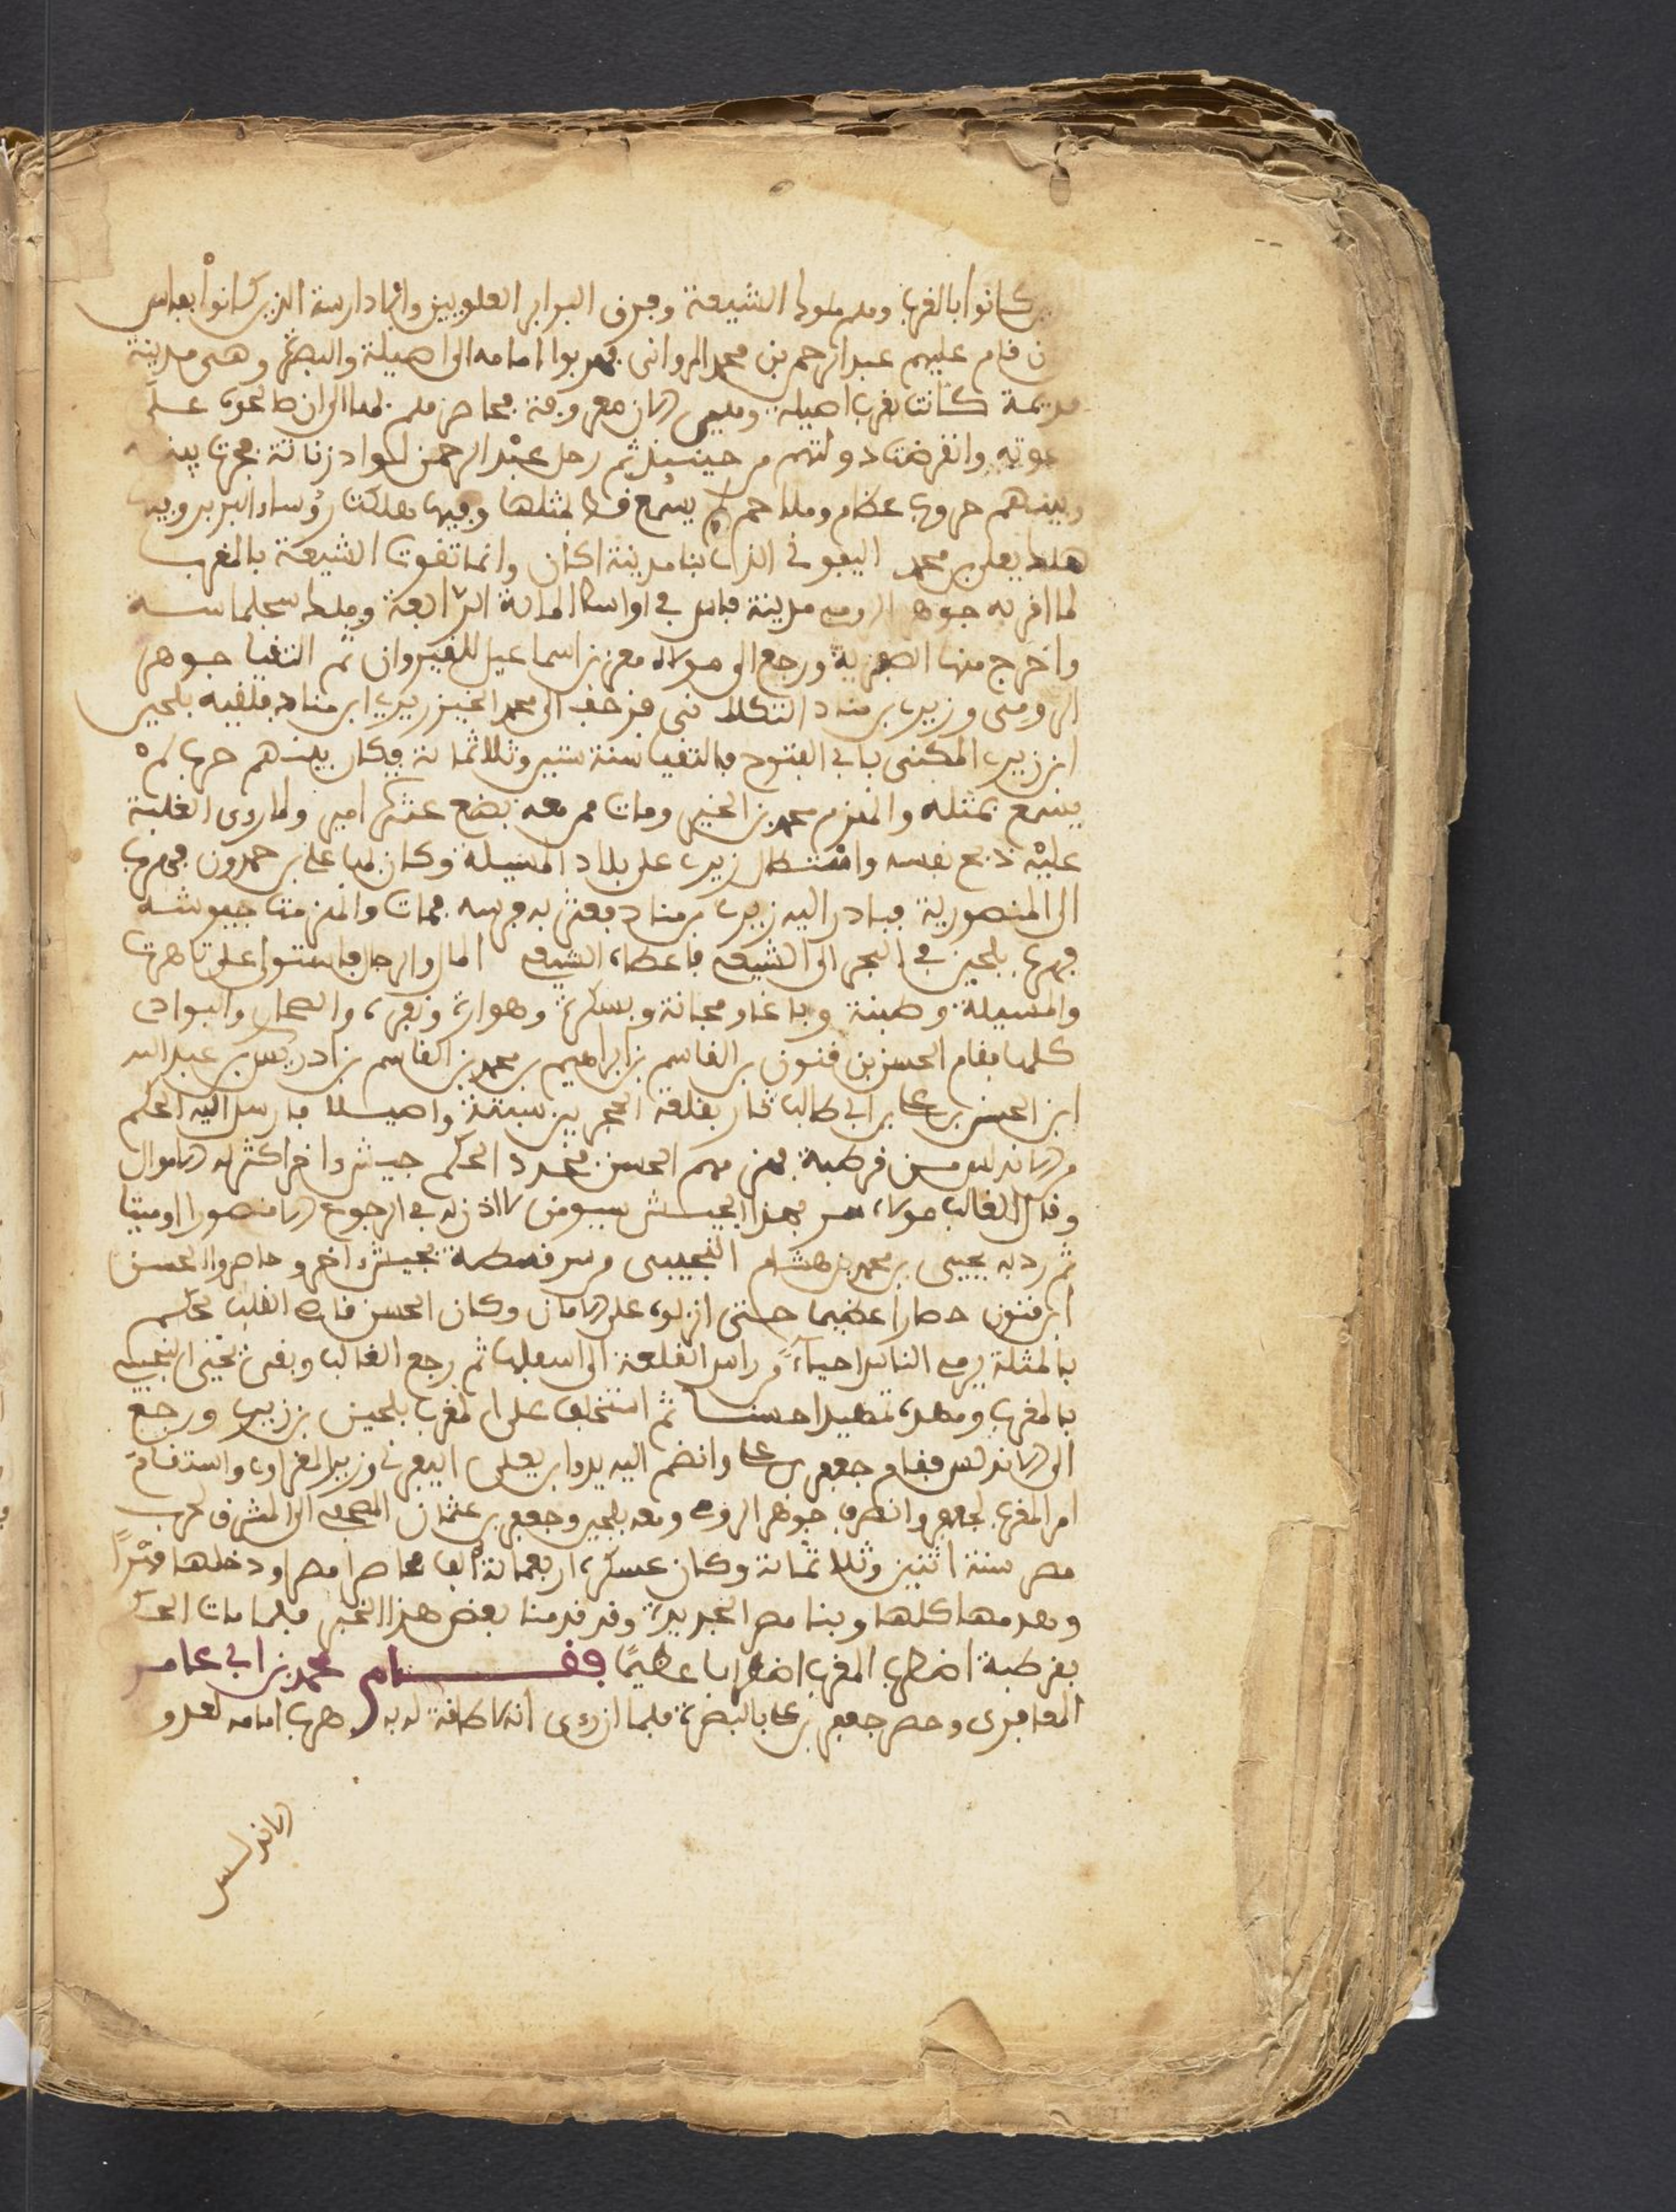 كانوا بالغرب وملك ملوك الشيعة وفرق البرابر العلويين والادارسة الذين كانوا بفاس
ن قام عليهم عبد الرحمن بن محمد المرواني فهربوا امامه الى اصيلة والبصرة وهى مدينة
قديمة كانت بقرب اصيلة وهي الان معروفة فحاصرهم بها الى ان طاعوا على
دعوته وانقرضت دولتهم من حينئذ ثم رحل عبد الرحمن لبواد زناتة فجرت بينه
وبينهم حروب عظام وملاحم لا يسمع قط بمثلها وفيها هلكت رؤساء البربر وفيها
هلك يعلى بن محمد اليفرني الذي بنا مدينة افكان وانما تقوت الشيعة بالمغرب
لما اقربه جوهر الرومي مدينة فاس في اواسط الماية الرابعة وملك سجلماسة
واخرج منها الصفرية ورجع الى مولاه معز بن اسماعيل للقيروان ثم التقيا جوهر
الرومى وزيري بن مناد التكلاتى فزحف الى محمد الخير زيري ابن مناد فلقيه بلجين
ابن زيري المكنى بابي الفتوح فالتقيا سنة ستين وثلاثمائة فكان بينهم حرب لم
يسمع بمثله وانهزم محمد بن الخير ومات ممن معه بضع عشر امير ولما روى الغلبة
عليه ذبح نفسه واستطال زيري على بلاد المسيلة وكان بها علي بن حمدون فهرب
الى المنصورية فبادر اليه زيري بن مناد فعثر به فرسه فمات وانهزمت جيوشه
فهرب بلجين في البحر الى الشيعي فاعطاه الشيعي المال والرجال فاستولى على تاهرت
والمسيلة وطبنة وباغا ومجانة وبسكرة وهوارة ونفزة والصحار والبوادي
كلها فقام الحسن بن قنون بن القاسم بن ابراهيم بن محمد بن القاسم بن ادريس بن عبد الله
ابن الحسن بن علي بن ابي طالب ثار بقلعة الحجر بين سبتة واصيلا فارسل اليه الحكم
من الاندلس من قرطبة فهزمهم الحسن فجدد الحكم جيشا واخر اكثر له الاموال
وقال لغالب مولاه سر بهذا الجيش سير من لا اذن له في الرجوع الا منصورا او ميتا
ثم رد به يحيى بن محمد بن هشام التجيبى من سرقسطة بجيش اخر وحاصروا الحسن
ابن قنون حصارا عظيما حتى انزلوه على الامان وكان الحسن قاس القلب يحكم
بالمثلة يرمي الناس احياء من راس القلعة الى اسفلها ثم رجع الغالب وبقى يحيى التجيبي
بالمغرب ومهده تمهيدا حسنا ثم استخلف على المغرب بلجين بن زيري ورجع
الى الاندلس فقام جعفر بن علي وانضم اليه يدو ابن يعلى اليفرني وزير المغراوي واستقام
امر المغرب لجعفر وانصرف جوهر الرومي ومعه بلجين وجعفر بن عثمان المصحفي الى المشرق لحرب
مصر سنة اثنين وثلاثمائة وكان عسكره اربعمائة الف فحاصر مصر ودخلها قسرا
وهدمها كلها وبنا مصر الجديدة وقد قدمنا بعض هذا الخبر فلما مات الحكم
بقرطبة اضطرب المغرب اضطرابا عظيما فقام محمد بن ابي عامر
المعافرى وحصر جعفر بن علي بالبصرة فلما ان روى انه لا طاقة له به هرب امامه لعدو
الاندلس